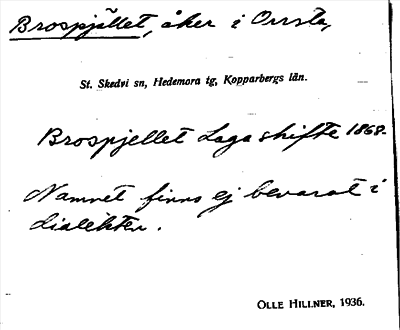 Brospjället, åker i Orrsta,
St. Skedvi sn, Hedemora tg, Kopparbergs län.
Brospjellet Laga skifte 1868.
Namnet finns ej bevarat i
dialekten.
OLLE HILLNER, 1936.